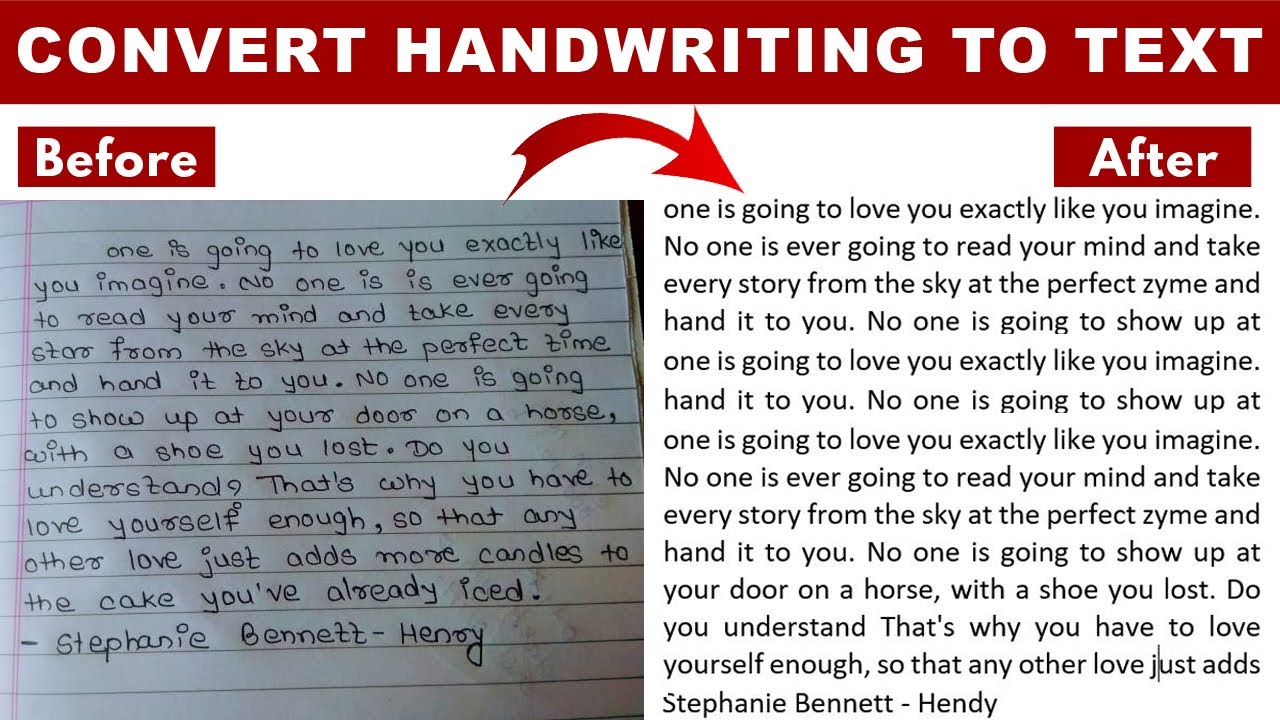 CONVERT HANDWRITING TO TEXT
Before
After
one is going to love you exactly like
you imagine. No one is is ever going
to read your mind and take every
star from the sky at the perfect time
and hand it to you. No one is going
to show up at your door on a horse,
with a shoe you lost. Do you
understand? That's why you have to
love yourself enough, so that any
other love just adds more candles to
the cake you've already iced.
- Stephanie Bennett - Henry
one is going to love you exactly like you imagine.
No one is ever going to read your mind and take
every story from the sky at the perfect zyme and
hand it to you. No one is going to show up at
one is going to love you exactly like you imagine.
hand it to you. No one is going to show up at
one is going to love you exactly like you imagine.
No one is ever going to read your mind and take
every story from the sky at the perfect zyme and
hand it to you. No one is going to show up at
your door on a horse, with a shoe you lost. Do
you understand That's why you have to love
yourself enough, so that any other love just adds
Stephanie Bennett - Hendy